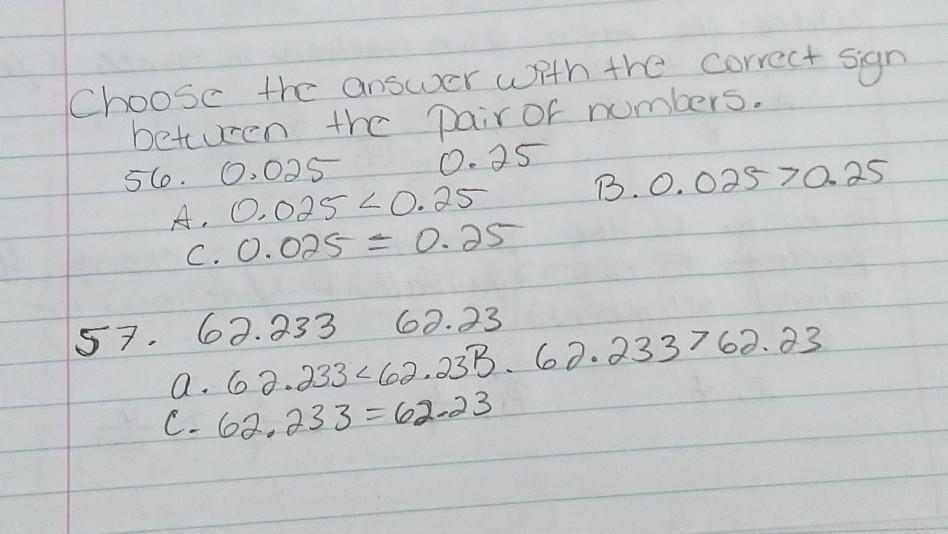 Choose the answer with the correct sign
between the pair of numbers.
56. 0.025 0.25
A. 0.025 < 0.25 B. 0.025 > 0.25
C. 0.025 = 0.25
57. 62.233 62.23
a. 62.233 < 62.23 B. 62.233 > 62.23
C. 62.233 = 62.23